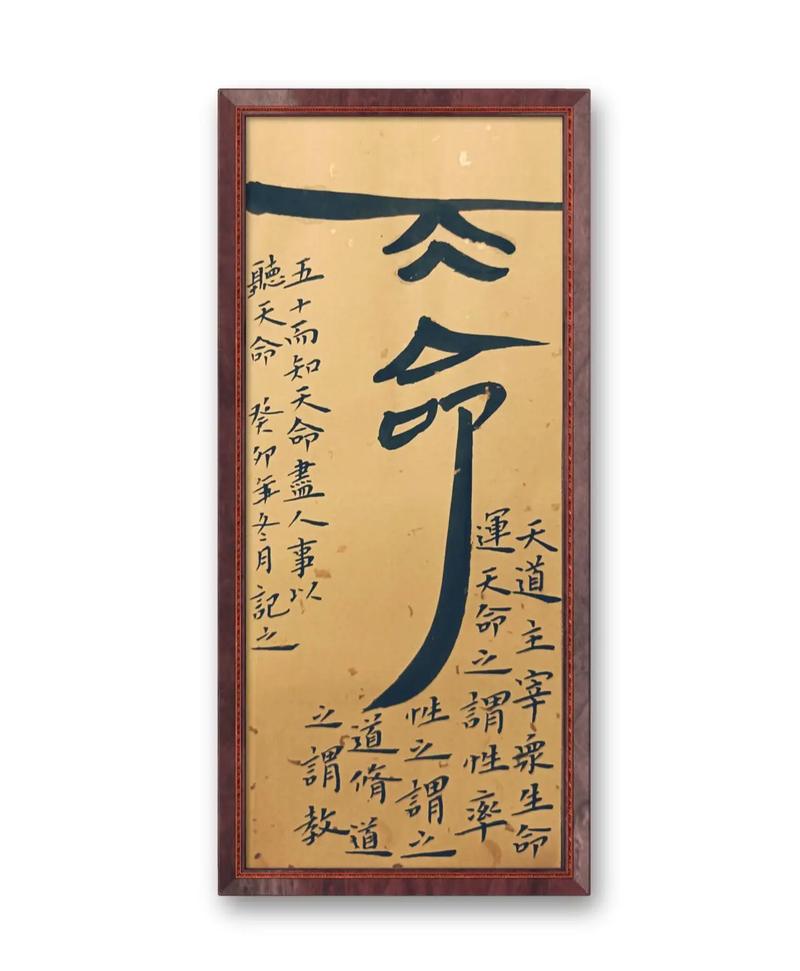 天命
天道主宰衆生命
運天命之謂性率
性之謂之
道脩道
之謂教
五十而知天命盡人事以
聽天命 癸卯年冬月記之